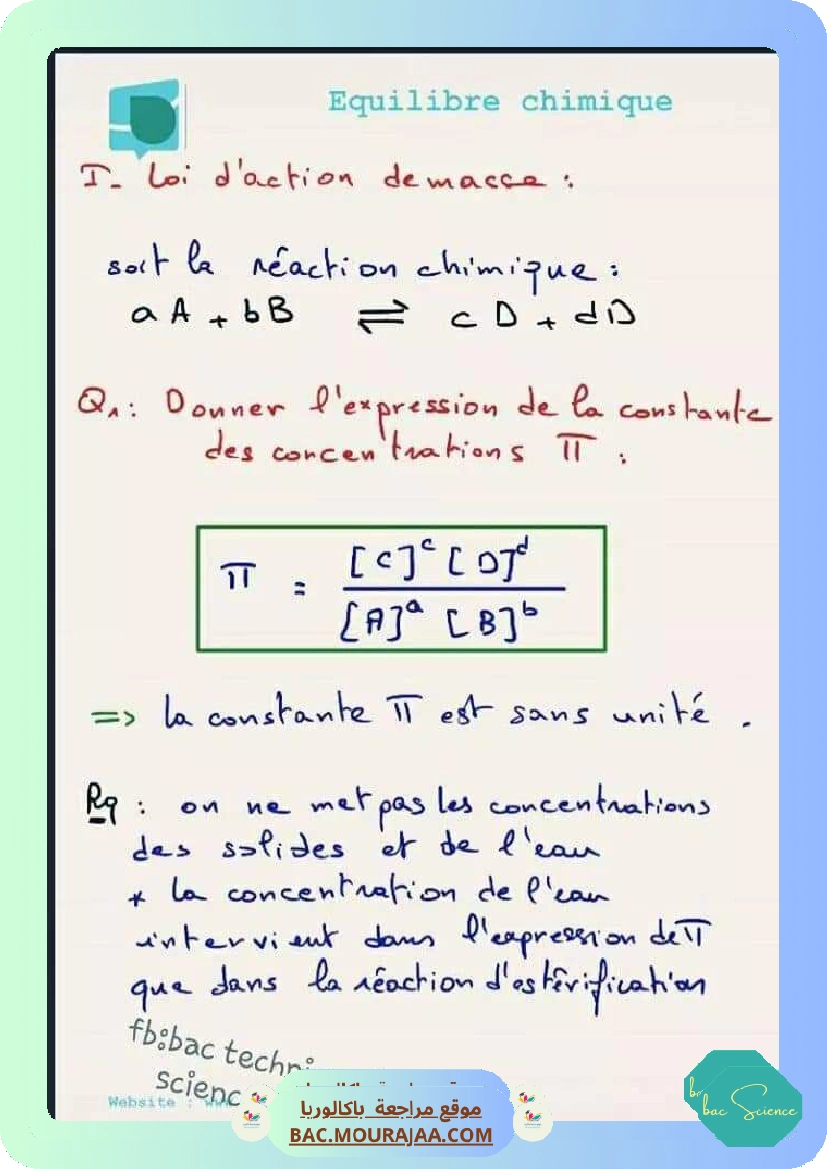 Equilibre chimique
I- Loi d'action de macse :
soit la réaction chimique :
aA + bB ⇌ cD + dD
Q1: Donner l'expression de la constante
des concentrations π :
π = [C]^c [D]^d / [A]^a [B]^b
=> la constante π est sans unité .
Rq : on ne met pas les concentrations
des solides et de l'eau
* la concentration de l'eau
intervient dans l'expression de π
que dans la réaction d'estérification
fb:bac techni
scienc
Website : www
موقع مراجعة باكالوريا
BAC.MOURAJAA.COM
bac Science